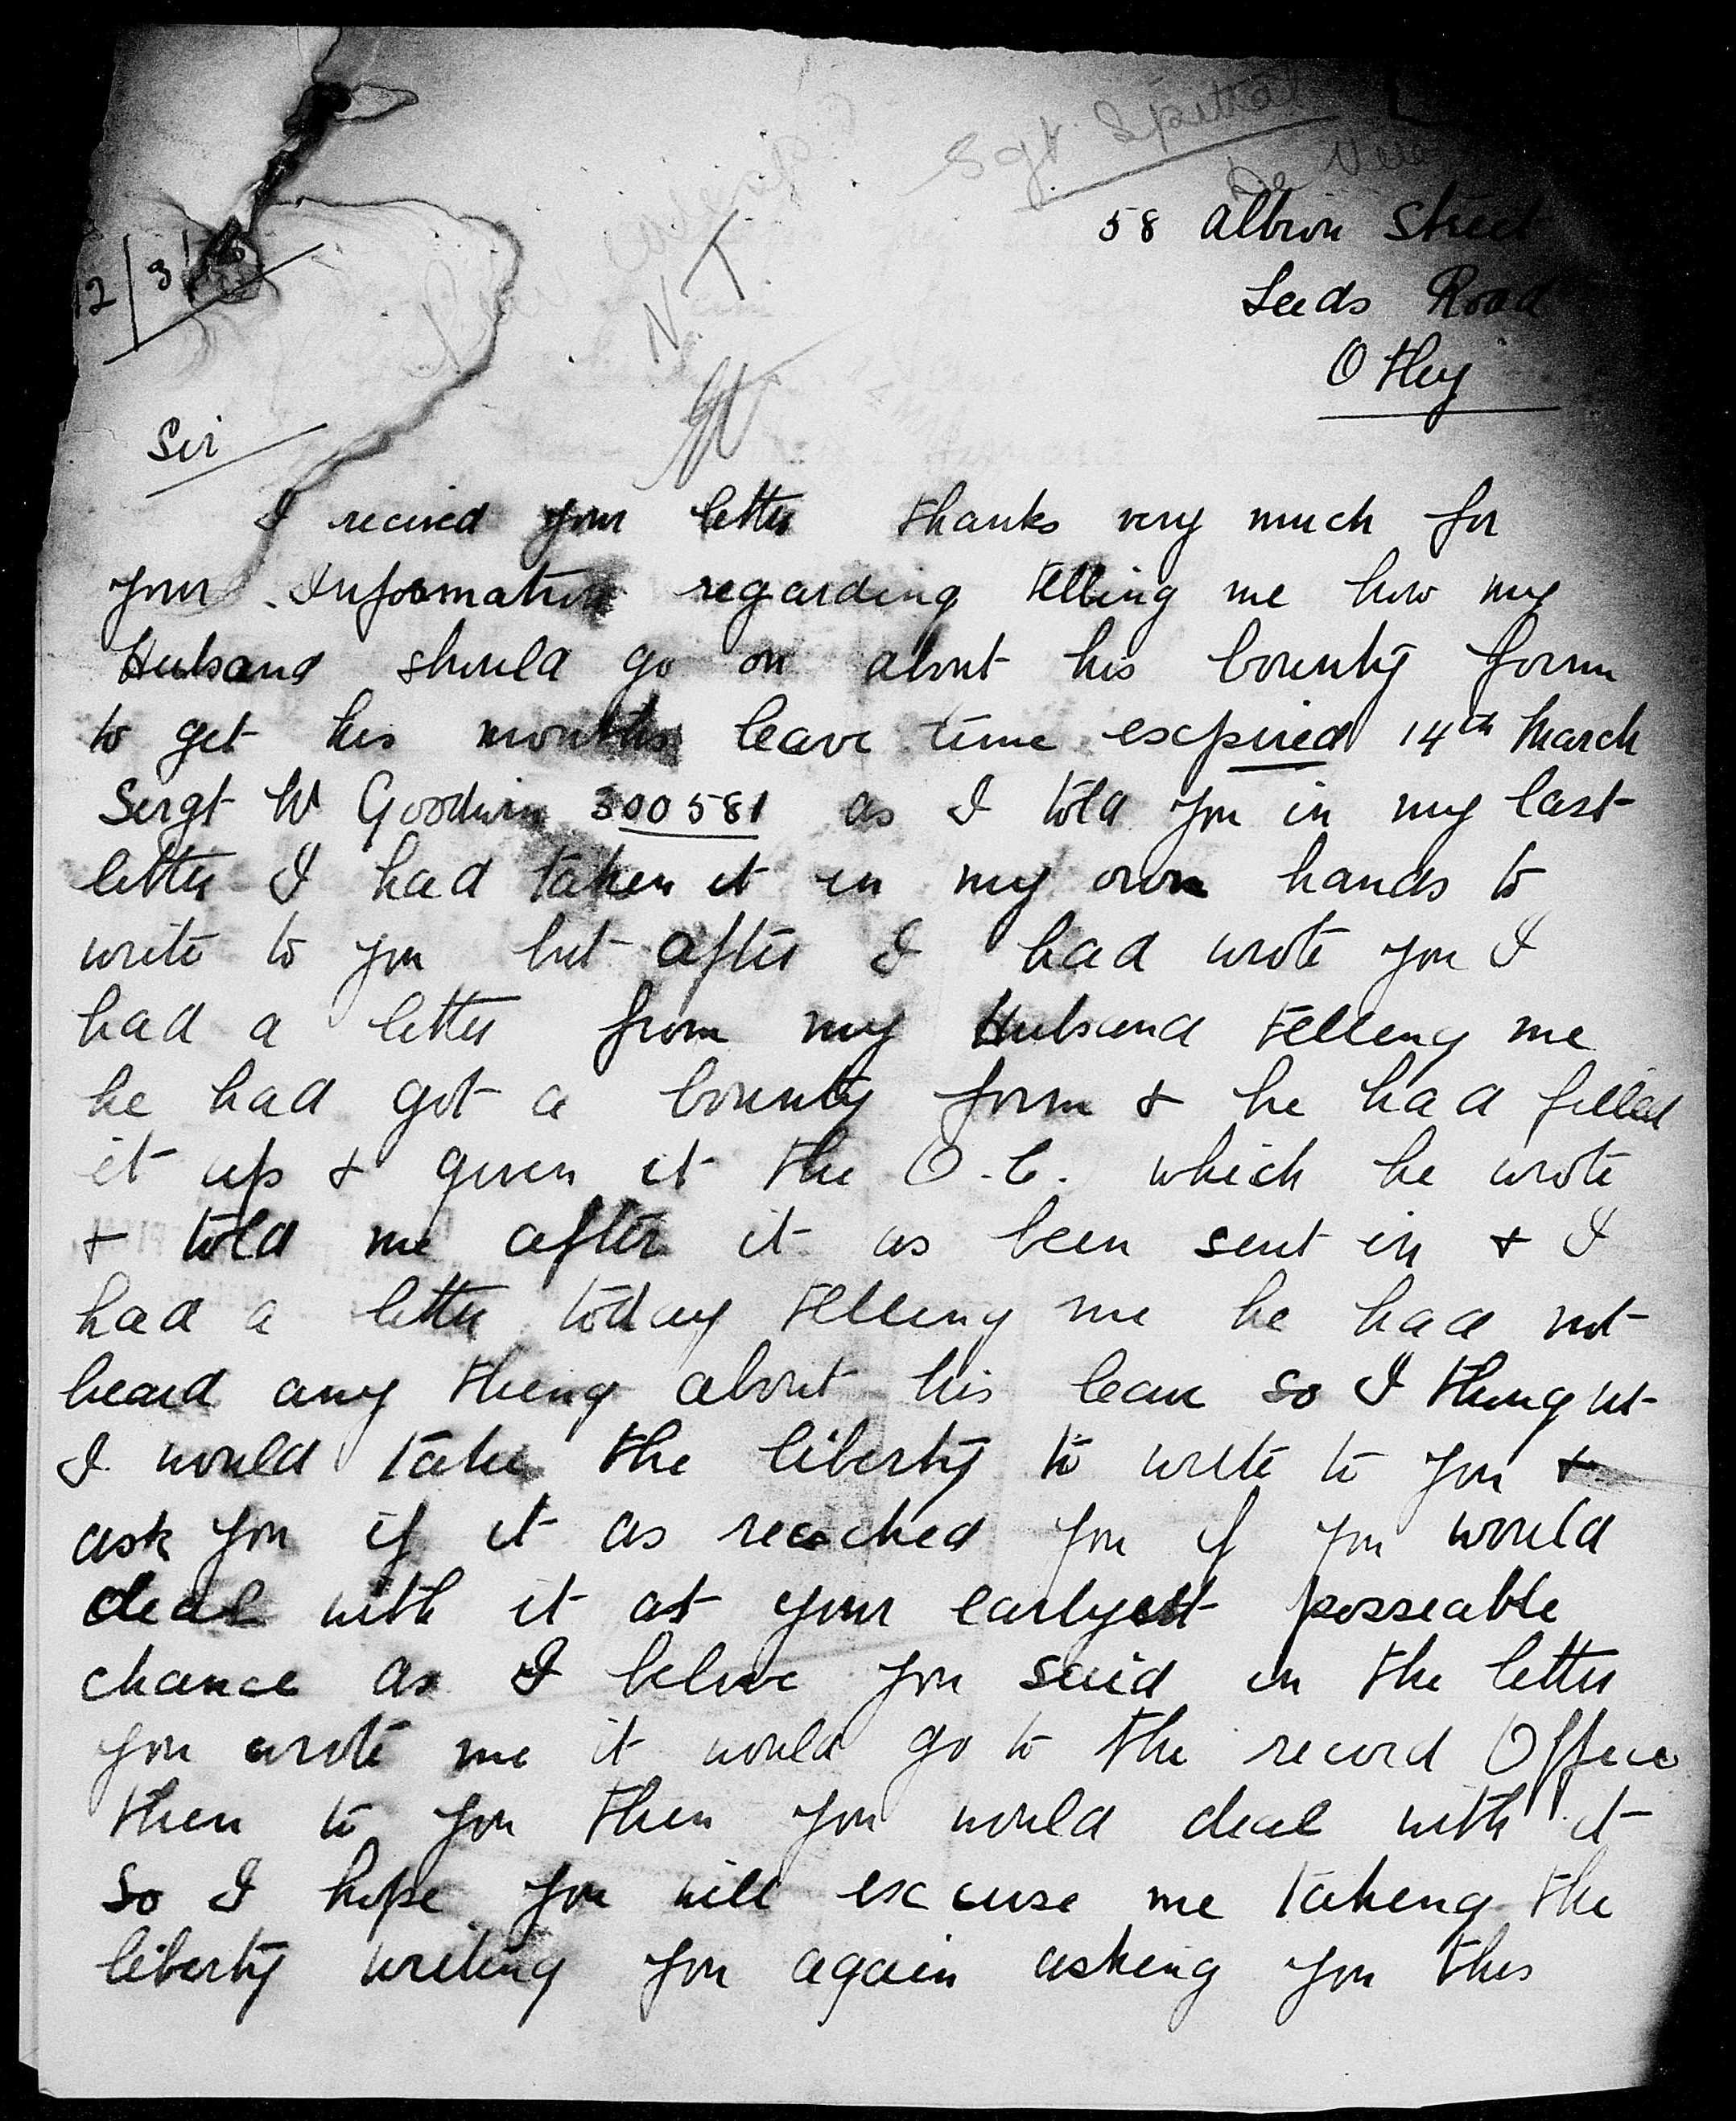 Sgt. Spittal
58 Albion Street
Leeds Road
Otley
12/3/
N.T.
Sir
I recived your letter thanks very much for
your Information regarding telling me how my
Husband should go on about his bounty form
to get his months leave time expired 14th March
Sergt W Goodwin 300581 as I told you in my last
letter I had taken it in my own hands to
write to you but after I had wrote you I
had a letter from my Husband telling me
he had got a bounty form & he had filled
it up & given it the O.C. which he wrote
& told me after it as been sent in & I
had a letter today telling me he had not
heard any thing about his leave so I thought
I would take the liberty to write to you &
ask you if it as reached you if you would
deal with it at your earlyest posseable
chance as I belive you said in the letter
you wrote me it would go to the record Office
then to you then you would deal with it
so I hope you will excuse me taking the
liberty writing you again asking you this